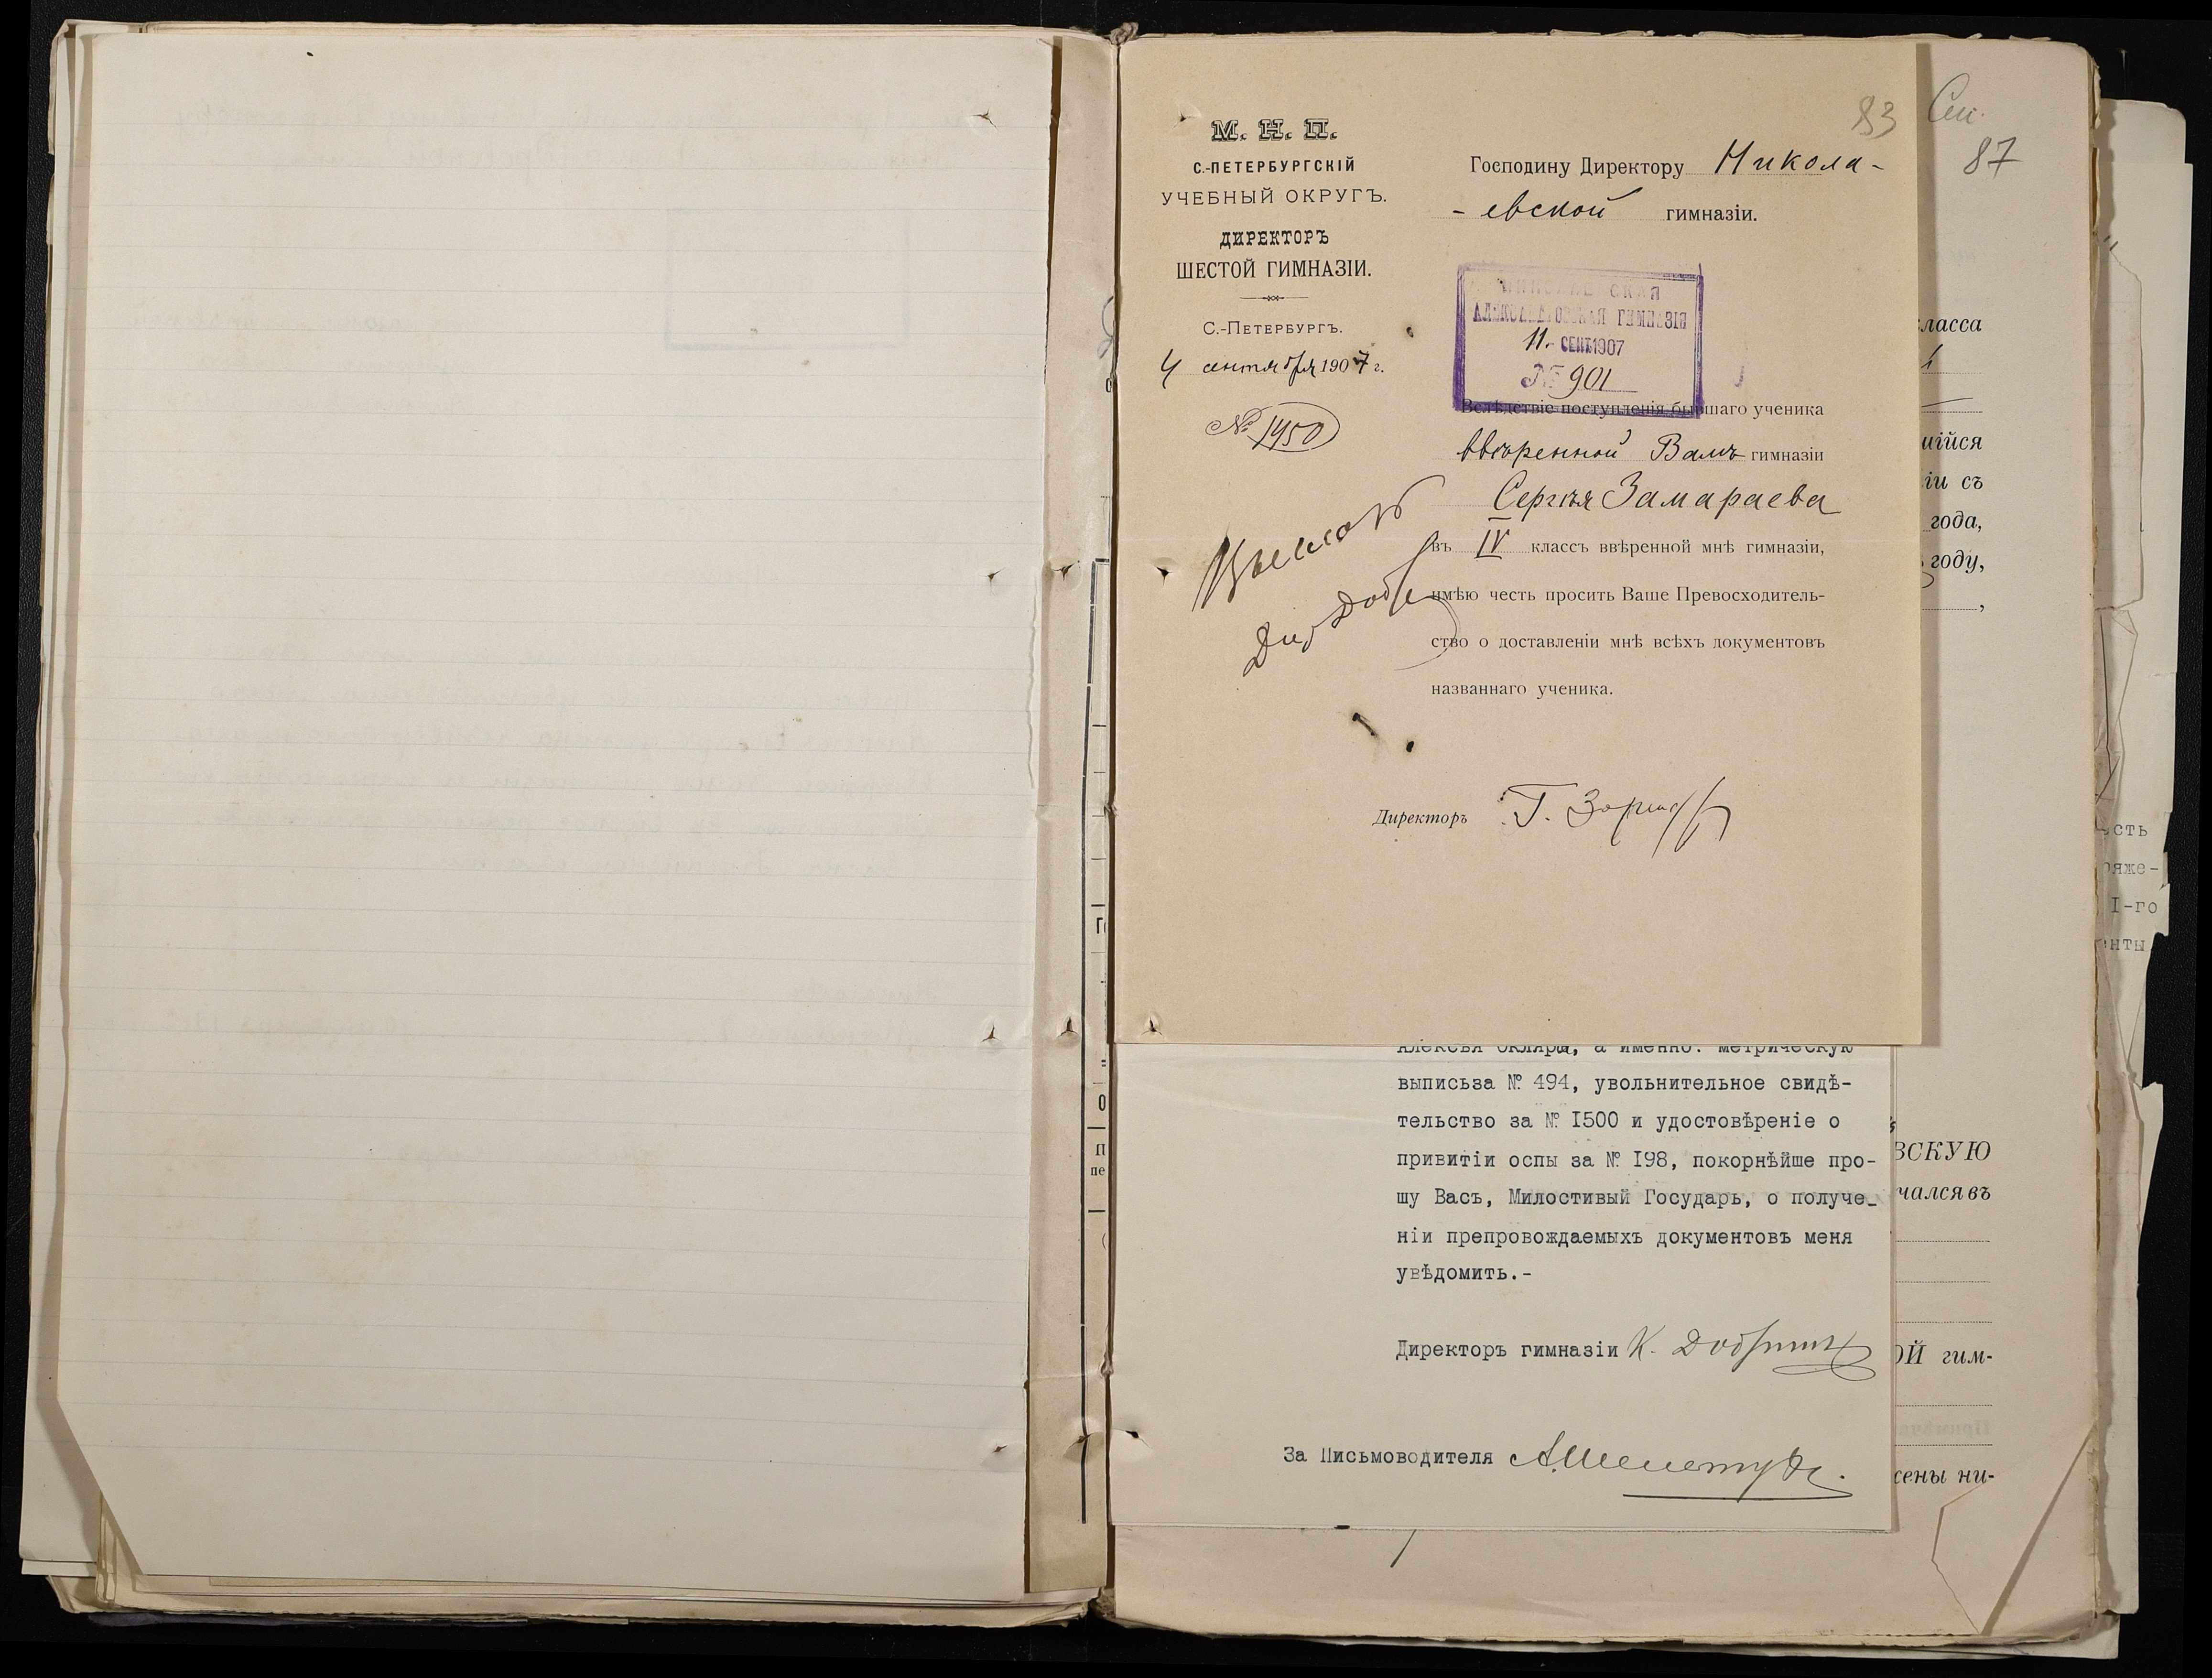 83
Сен.
87
М. Н. П.
С.-ПЕТЕРБУРГСКІЙ
УЧЕБНЫЙ ОКРУГЪ.
ДИРЕКТОРЪ
ШЕСТОЙ ГИМНАЗІИ.
С.-ПЕТЕРБУРГЪ.
4 сентября 1907 г.
№ 1450
Господину Директору Никола-
- евской гимназіи.
НИКОЛАЕВСКАЯ
АЛЕКСАНДРОВСКАЯ ГИМНАЗІЯ
11 СЕНТ 1907
№ 901
Вслѣдствіе поступленія бывшаго ученика
ввѣренной Вамъ гимназіи
Сергѣя Замараева
въ IV классъ ввѣренной мнѣ гимназіи,
имѣю честь просить Ваше Превосходитель-
ство о доставленіи мнѣ всѣхъ документовъ
названнаго ученика.
Директоръ Г.
Алексѣя Окляра, а именно: метрическую
выписьза № 494, увольнительное свидѣ-
тельство за № I500 и удостовѣреніе о
привитіи оспы за № I98, покорнѣйше про-
шу Васъ, Милостивый Государь, о получе-
ніи препровождаемыхъ документовъ меня
увѣдомить.-
Директоръ гимназіи К.
За Письмоводителя
ласса
ійся
іи съ
года,
году,
ВСКУЮ
чался въ
ОЙ гим-
ены ни-
сть
ряже-
I-го
нты